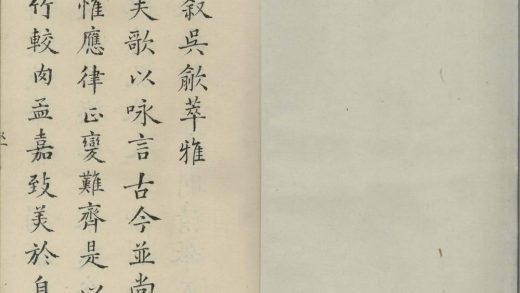 叙吳歈萃雅
夫歌以咏言古今並尚
惟應律正變難齊是以
竹較肉孟嘉致美於自